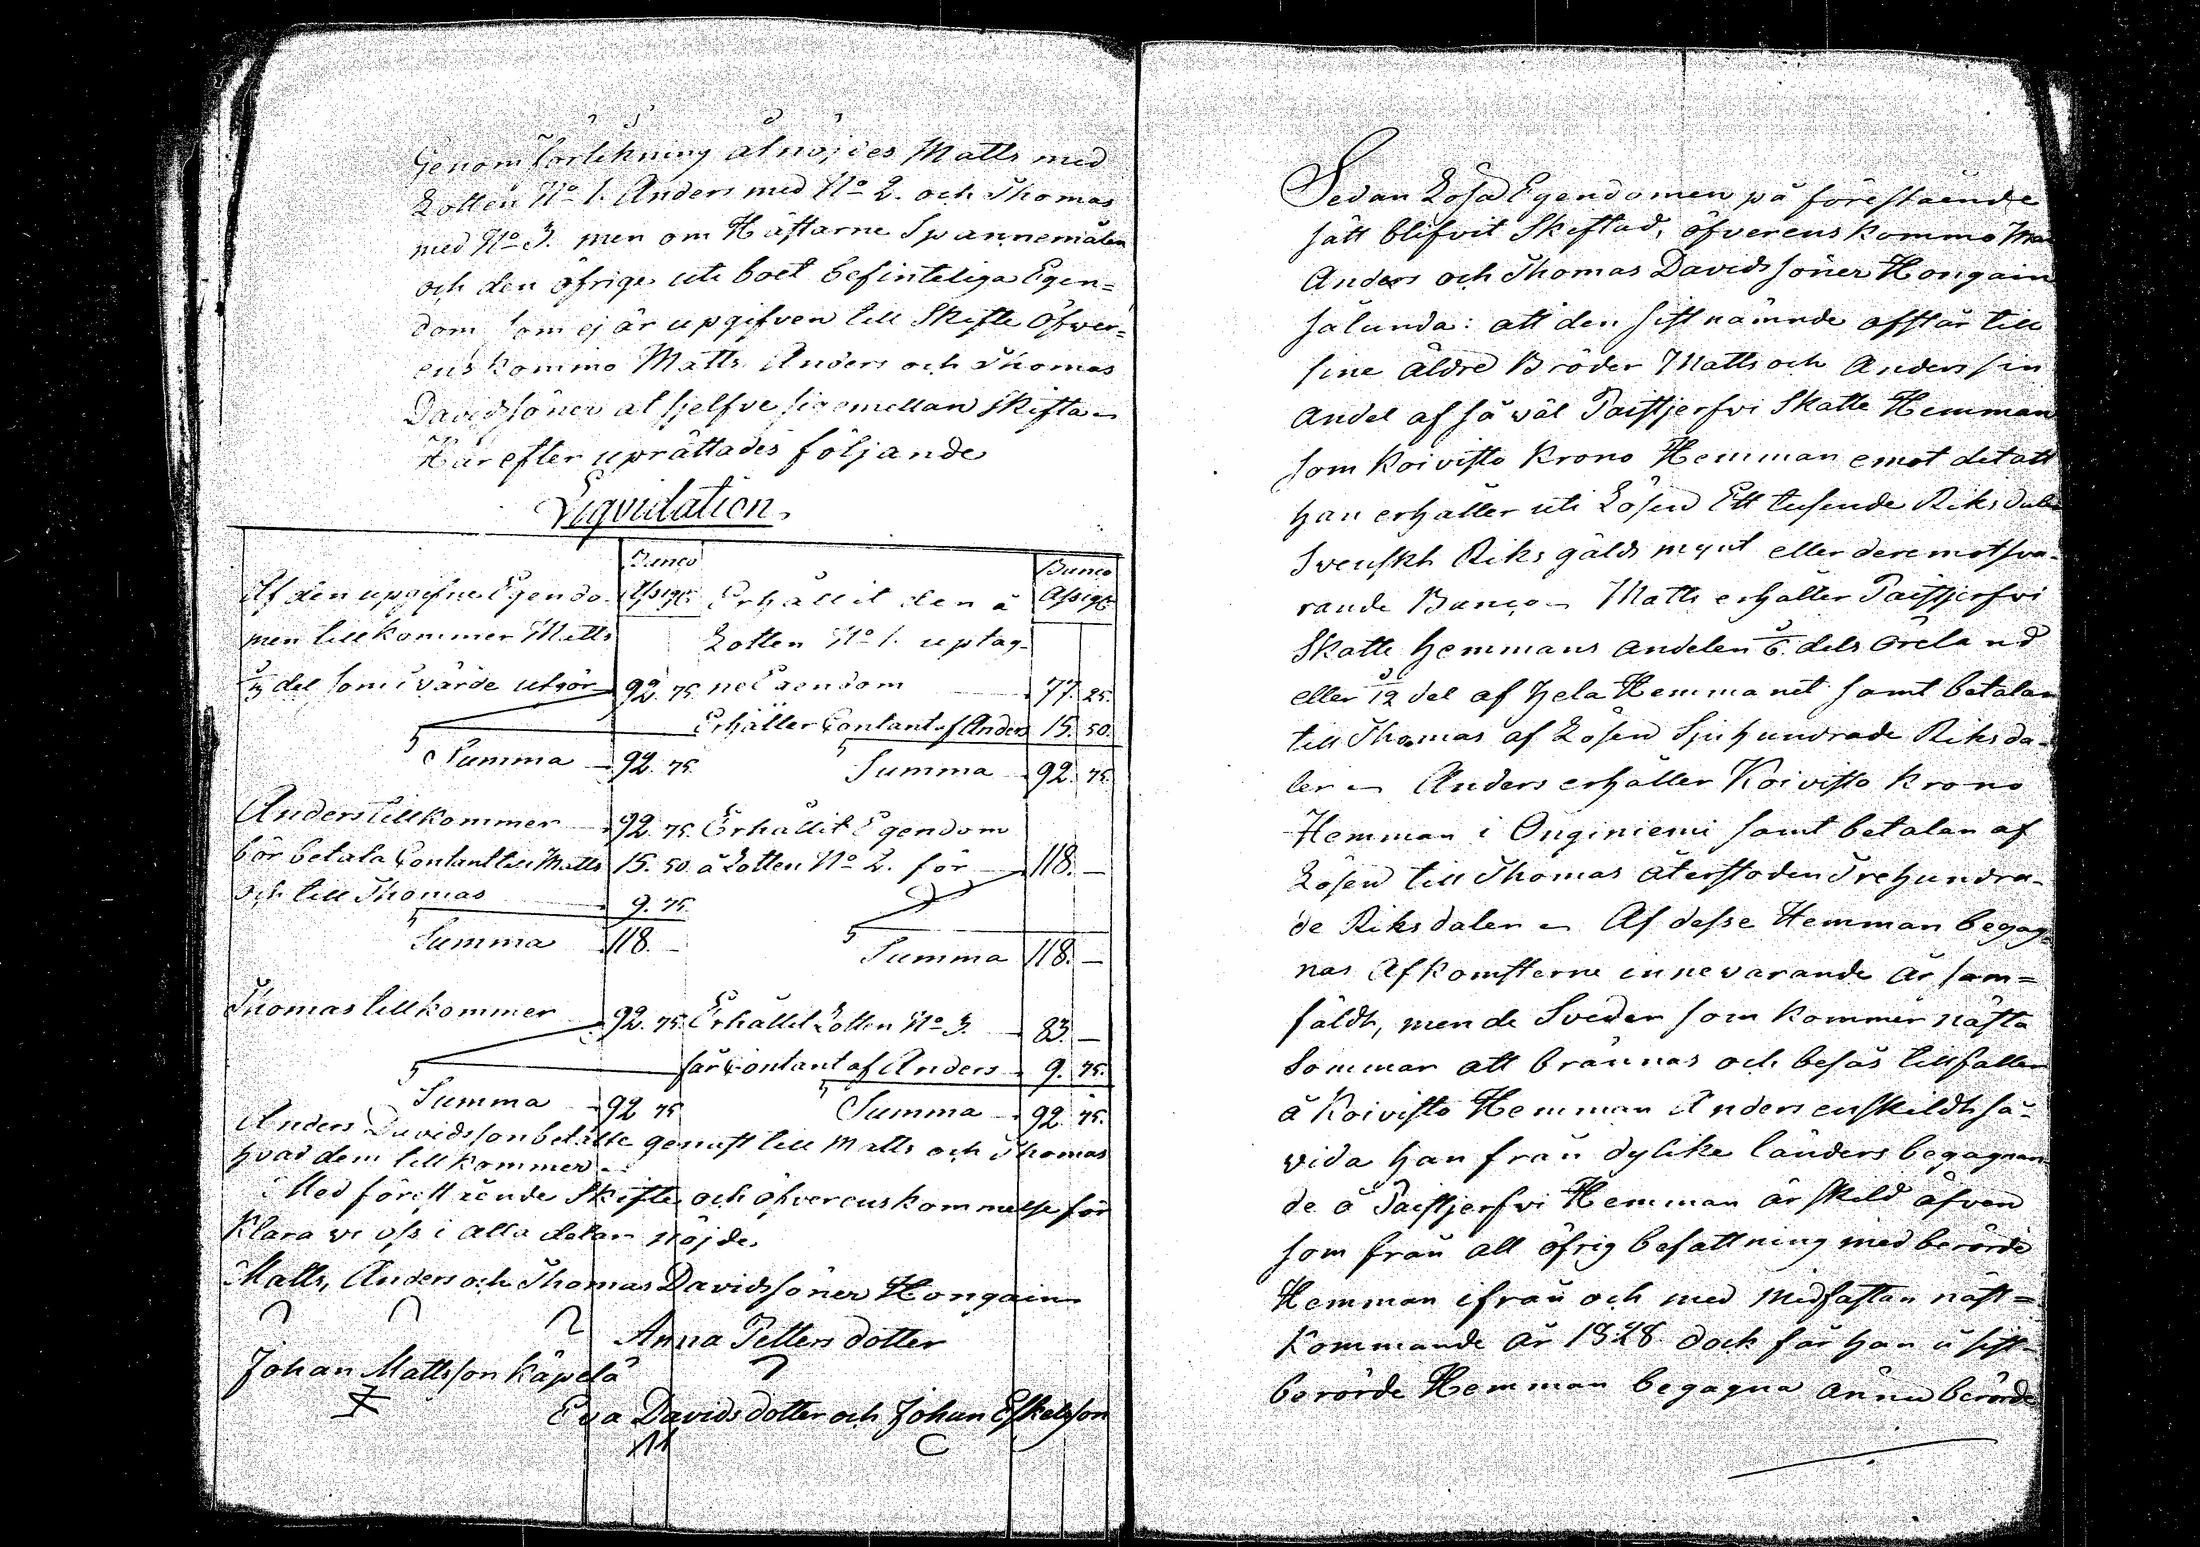 Genom Lottkning atnöjdes Matts med
Lotten No 1. Anders med No 2. och Thomas
med No 3. men om Hästarne Spannemålen
och den öfrige uti boet befinteliga Egen=
dom som ej är upgifven till Skifte öfver=
ens kommo Matts Anders och Thomas
Davidssöner at sjelfve sigemellan skifta
Härefter uprättades följande
Liqvidation
Af den upgifne Egendo- | Banco Assigt | Erhållit den å | Banco Assigt
men tillkommer Matts | | Lotten No 1. uptag-
1/3 del som i värde utgör | 92. 75. | ne Egendom | 77. 25.
Erhåller Contant af Anders | 15. 50.
Summa | 92. 75. | Summa | 92. 75.
Anders tillkommer | 92. 75. | Erhållit Egendom
bör betala Contant till Matts | 15. 50. | å Lotten No 2. för | 118. —
och till Thomas | 9. 75.
Summa | 118. — | Summa | 118. —
Thomas tillkommer | 92. 75. | Erhållit Lotten No 3. | 83. —
får Contant af Anders | 9. 75.
Summa | 92 75 | Summa | 92. 75.
Anders Davidsson betalte genast till Matts och Thomas
hvad dem tillkommer
Med förestående Skifte och öfverenskommelse för
klara vi oss i alla delar nöjde.
Matts, Anders och Thomas Davidssöner Hongain
Anna Petters dotter
Johan Mattsson Käpelä
Eva Davids dotter och Johan Eskelsson
Sedan Lösa Egendomen på förestående
sätt blifvit Skiftad, öfverenskommo
Anders och Thomas Davidssöner Hongain
sålunda: att den sistnämnde afstår till
sine äldre Bröder Matts och Anders sin
Andel af så väl Paistjerfvi Skatte Hemman
som Koivisto Krono Hemman emot det att
han erhåller uti Lösen Ett tusende Riksdaler
Svenskt Riksgälds mynt eller deremotsva-
rande Banco Matts erhåller Paistjerfvi
Skatte hemmans andelen 1/6 dels öreland
eller 1/12 del af hela Hemmanet samt betalar
till Thomas af Lösen Sjuhundrade Riksda-
ler Anders erhåller Koivisto Krono
Hemman i Onginiemi samt betalar af
Lösen till Thomas återstoden Trehundra-
de Riksdaler Af desse Hemman begag-
nas Afkomsterne innevarande år sam=
fäldt, men de Svedier som kommer nästa
Sommar att brännas och besås tillfaller
å Koivisto Hemman Anders enskildt så-
vida han från dylike länders begagnan-
de å Paistjerfvi Hemman är skild äfven
som från all öfrig befattning med berörde
Hemman ifrån och med Midfastan näst=
kommande år 1828 dock får han å sist-
berörde Hemman begagna ännu berörde